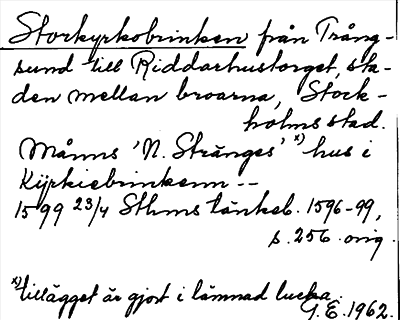 Storkyrkobrinken från Trång-
sund till Riddarhustorget, sta-
den mellan broarna, Stock-
holms stad.
Månns 'N. Stränges' x) hus i
Kyrkiebrinkenn --
1599 23/4 Sthms tänkeb. 1596-99,
s. 256. orig.
x) tillägget är gjort i lämnad lucka.
G.E. 1962.